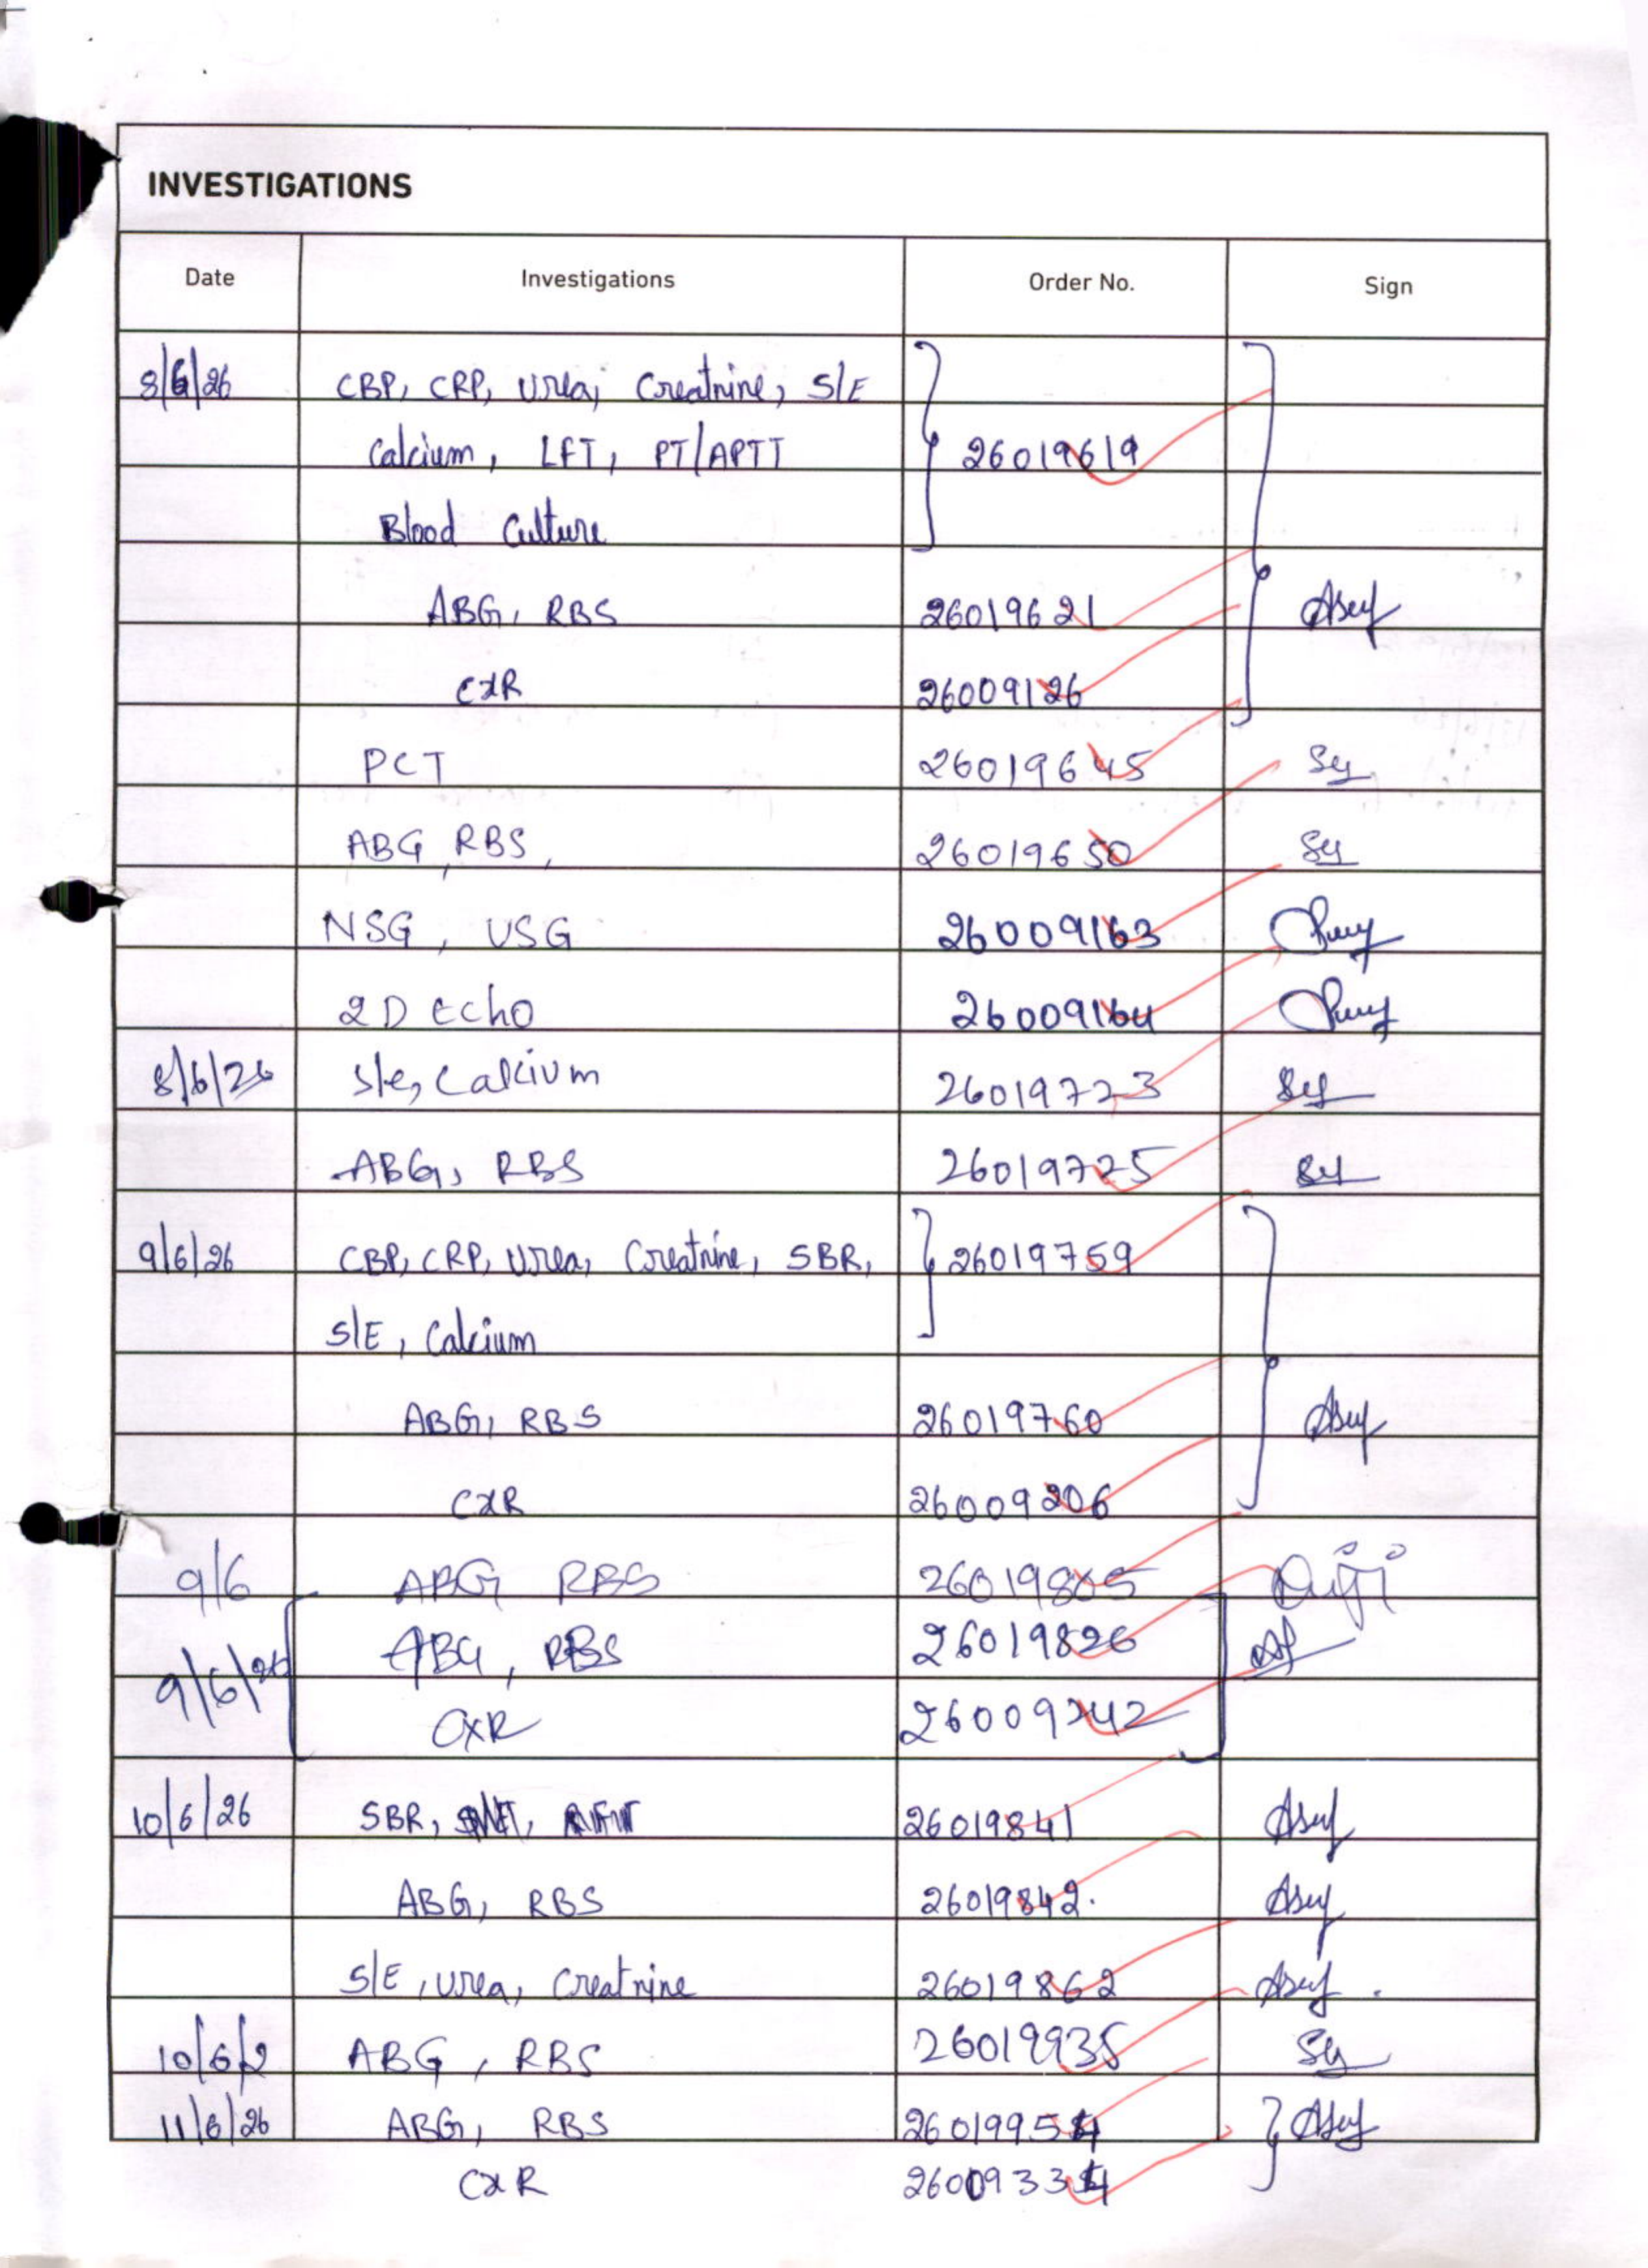 INVESTIGATIONS
Date Investigations Order No. Sign
8/6/26 CBP, CRP, Urea, Creatnine, S/E
Calcium, LFT, PT/APTT 26019619
Blood Culture
ABG, RBS 26019621
CXR 26009126
PCT 26019645
ABG, RBS, 26019650
NSG, USG 26009163
2D Echo 26009164
8/6/26 S/e, Calcium 26019723
ABG, RBS 26019725
9/6/26 CBP, CRP, Urea, Creatnine, SBR, 26019759
S/E, Calcium
ABG, RBS 26019760
CXR 26009206
9/6 ABG RBS
9/6/26 ABG, RBS 26019826
CXR 26009242
10/6/26 SBR, 26019841
ABG, RBS 26019842.
S/E, Urea, Creatnine 26019862
10/6/2 ABG, RBS 26019935
11/6/26 ABG, RBS 26019954
CXR 26009334